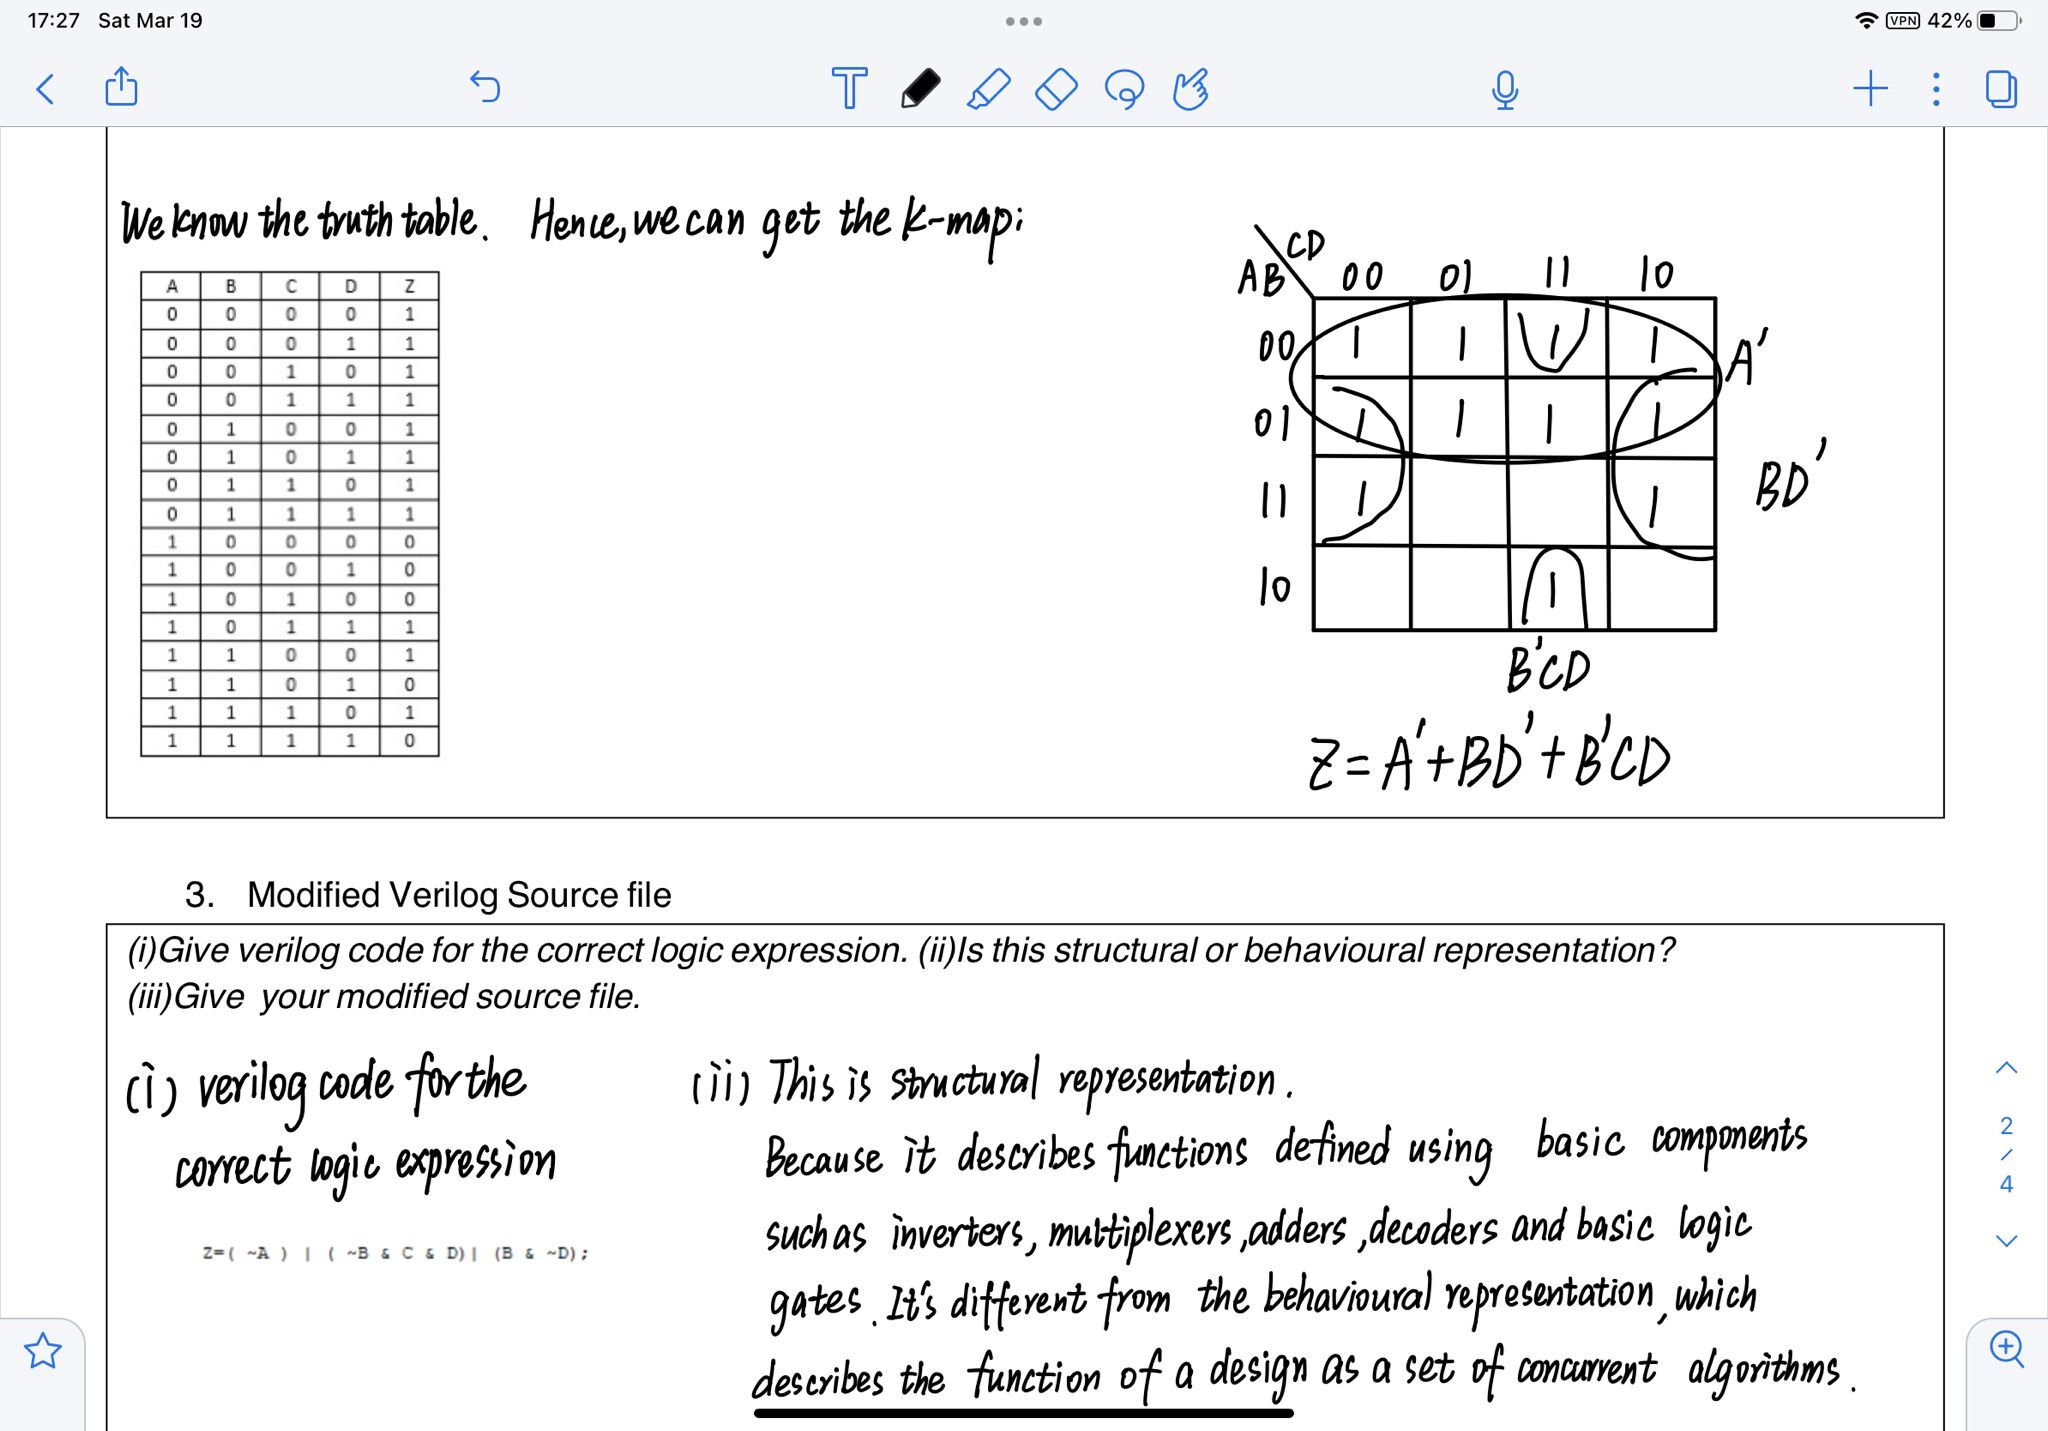 17:27 Sat Mar 19
VPN 42%
T
We know the truth table. Hence, we can get the k-map:
A B C D Z
0 0 0 0 1
0 0 0 1 1
0 0 1 0 1
0 0 1 1 1
0 1 0 0 1
0 1 0 1 1
0 1 1 0 1
0 1 1 1 1
1 0 0 0 0
1 0 0 1 0
1 0 1 0 0
1 0 1 1 1
1 1 0 0 1
1 1 0 1 0
1 1 1 0 1
1 1 1 1 0
CD
AB 00 01 11 10
00 1 1 1 1 A'
01 1 1 1 1
11 1 1 BD'
10 1
B'CD
Z=A'+BD'+B'CD
3. Modified Verilog Source file
(i)Give verilog code for the correct logic expression. (ii)Is this structural or behavioural representation?
(iii)Give your modified source file.
(i) verilog code for the
correct logic expression
Z=( ~A ) | ( ~B & C & D)| (B & ~D);
(ii) This is structural representation.
Because it describes functions defined using basic components
such as inverters, multiplexers, adders, decoders and basic logic
gates. It's different from the behavioural representation, which
describes the function of a design as a set of concurrent algorithms.
2
/
4